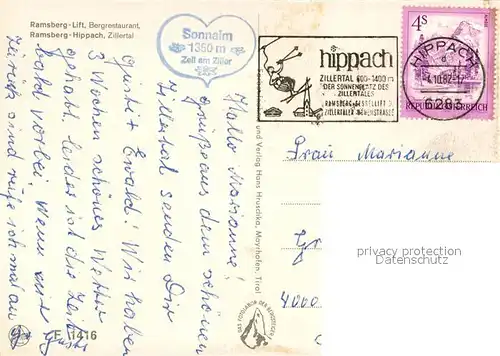 Ramsberg-Lift, Bergrestaurant,
Ramsberg-Hippach, Zillertal
Sonnalm
1350 m
Zell am Ziller
hippach
ZILLERTAL 600-1400 m
DER SONNENPLATZ DES
ZILLERTALES
RAMSBERG-SESSELLIFT
ZILLERTALER HÖHENSTRASSE
4S
HIPPACH
4.10.82-17
6283
REPUBLIK ÖSTERREICH
Hallo Marianne!
Grüße aus dem schönen
Zillertal senden Dir
Gusti + Ewald! Wir haben
3 Wochen schönes Wetter
gehabt, leider ist die Zeit
bald vorbei. Wenn wir
zurück sind rufe ich mal an
Gusti
und Verlag Hans Hruschka, Mayrhofen, Tirol
Frau Marianne
4000
privacy protection
Datenschutz
E 1416